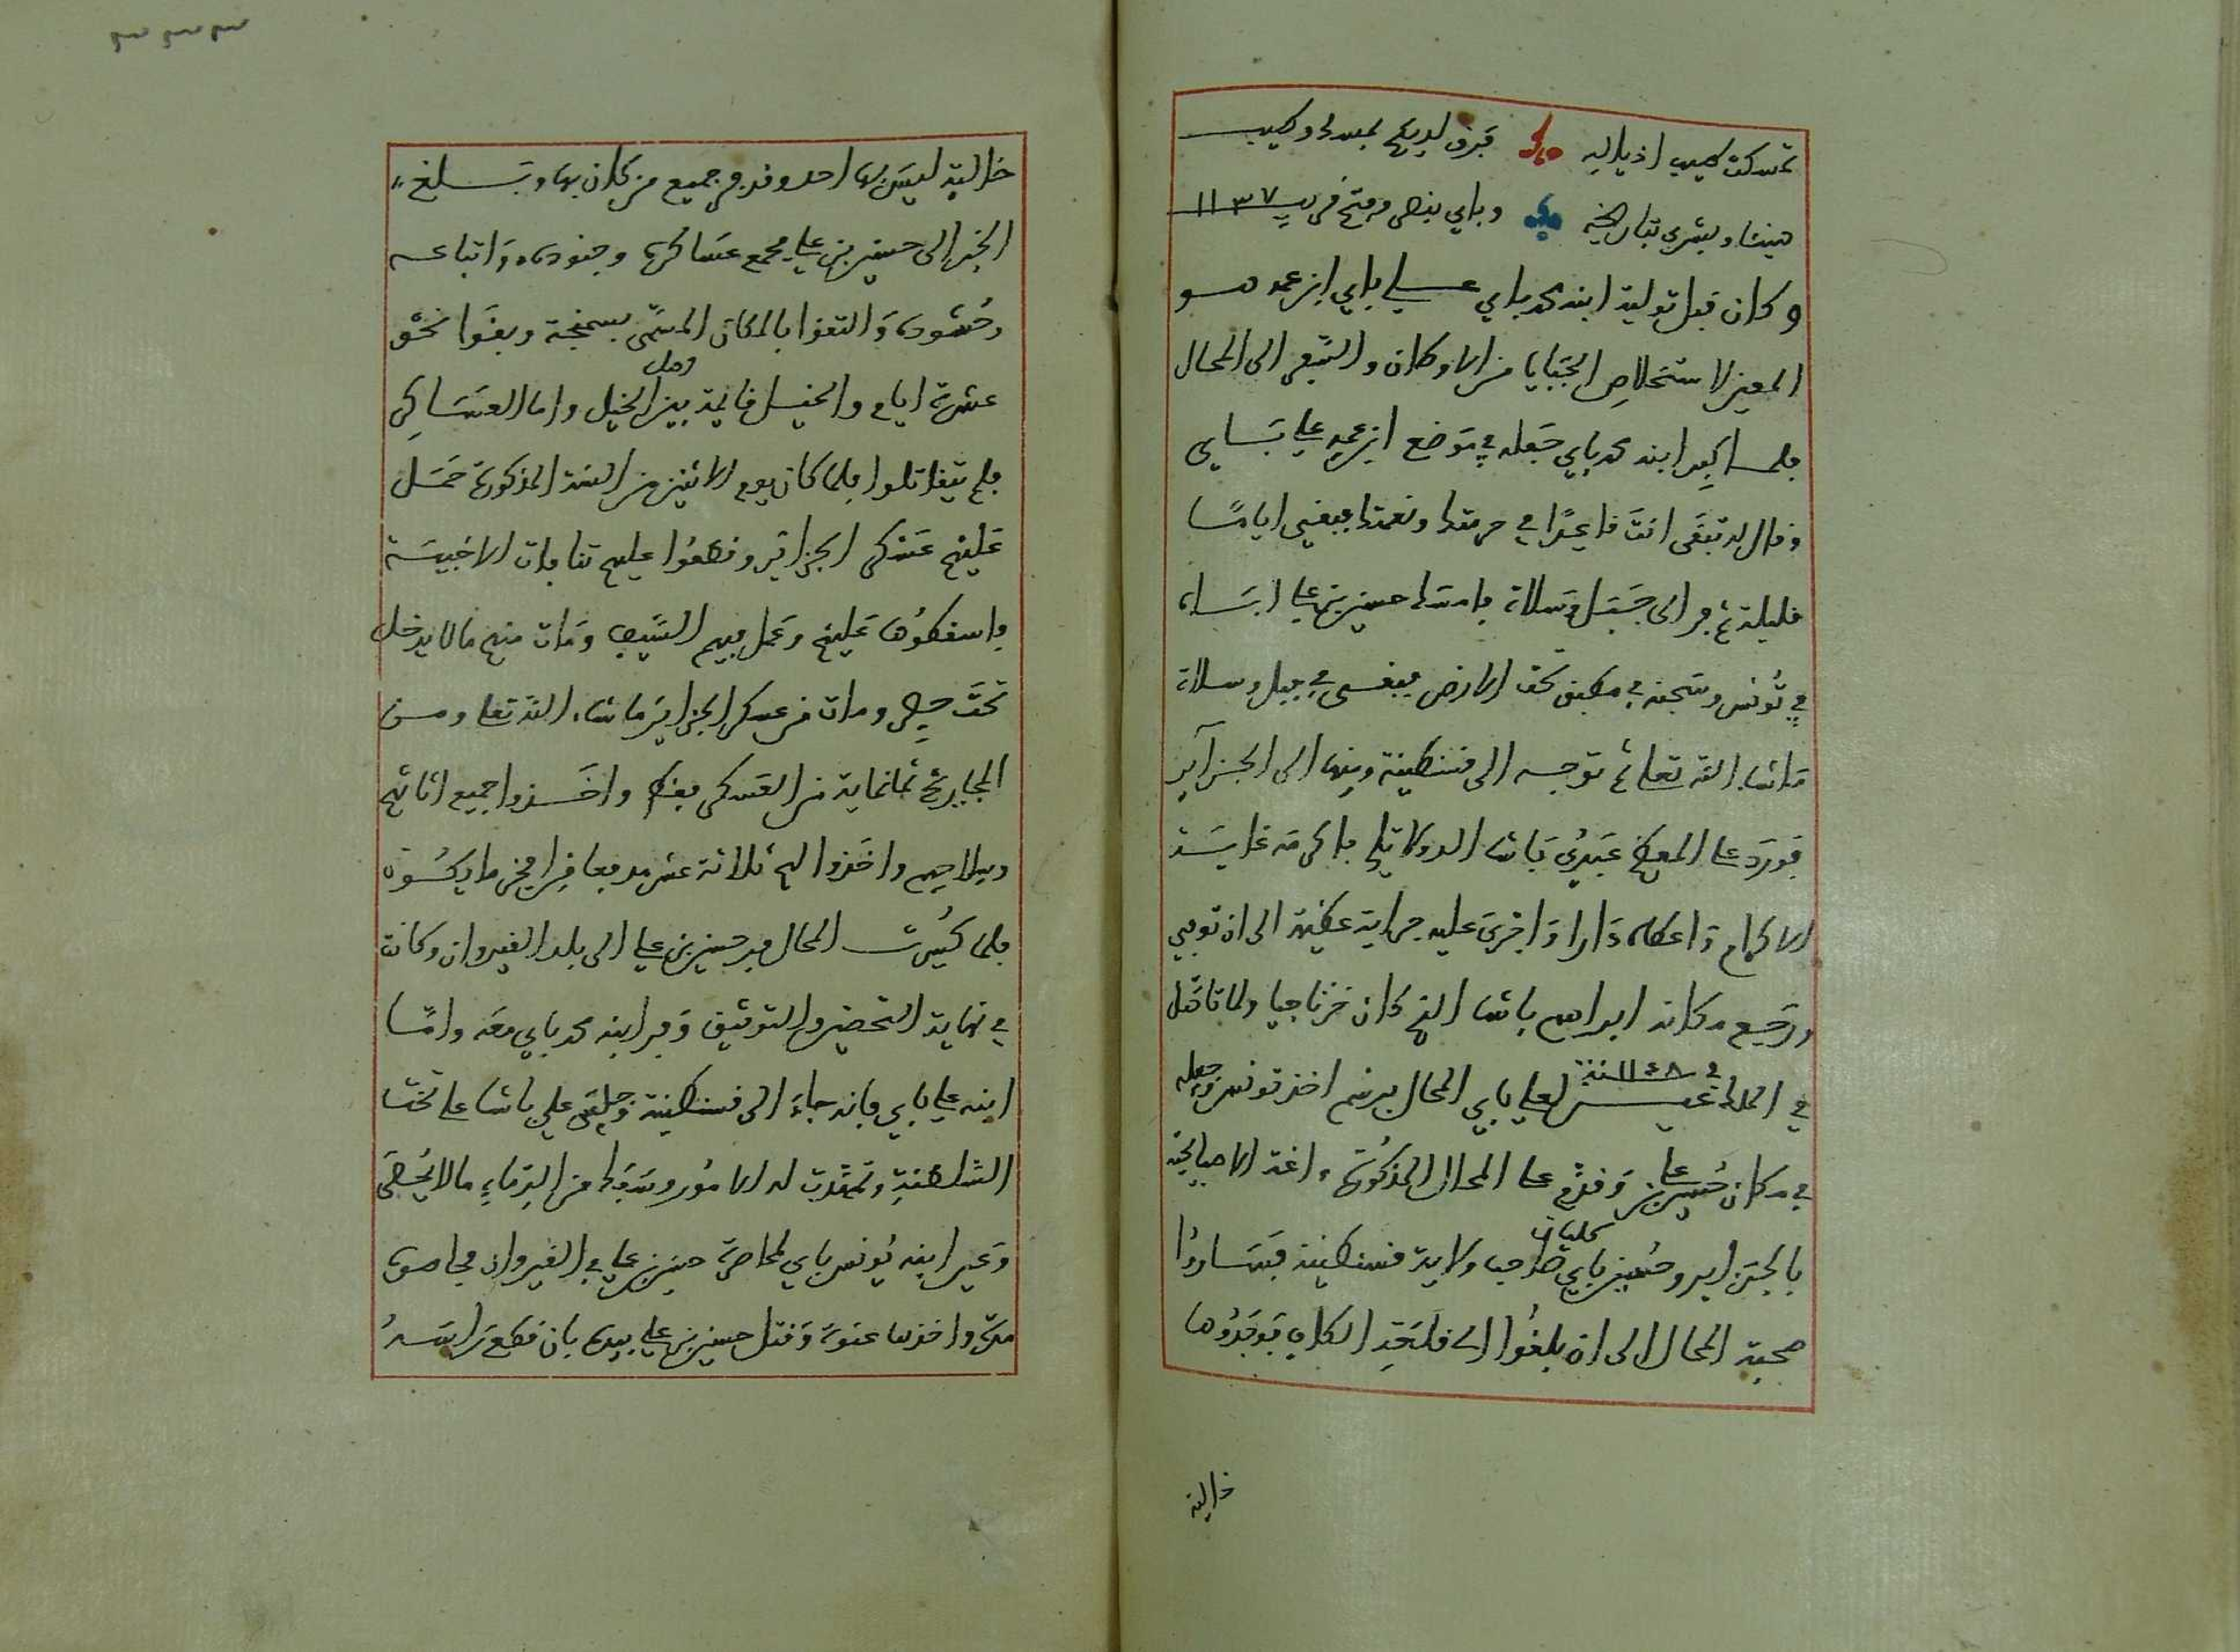 تمسكت بطيب اذياله فبرق لديكم بمسك وطيب
هينئا وبشرى بتاريخه وباي بنصر وفتح قريب ١١٣٧
وكان قبل تولية ابنه محمد باي علي باي ابن عمه هو
المعين لاستخلاص الجبايا من الاوطان والسفر الى المحال
فلما كبر ابنه محمد باي جعله في موضع ابن عمه علي باي
وقال له تبقى انت قاعدا في حرمتك ونعمتك فبقي اياما
قليلة ثم فر الى جبل وسلاة فامسك حسين بن علي اباه
في تونس وسجنه في مطبق تحت الارض فبقى في جبل وسلاة
ماشاء الله تعالى ثم توجه الى قسنطينة ومنها الى الجزائر
فورد على المعظم عبدي باشا الدولاتلي فاكرمه غاية
الاكرام واعطاه دارا واجرى عليه جراية عظيمة الى ان توفي
ورجع مكانه ابراهيم باشا الذي كان خزناجيا ولما تاصل
في الملك عين لعلي باي المحال برسم اخذ تونس وجعله
في ١١٤٨ سنة
في مكان حسين بن علي وقدم على المحال المذكورة اغة الاصبايحية
بالجزاير وحسين باي كليان صاحب ولاية قسنطينة فساروا
صحبة المحال الى ان بلغوا الى قلعة الكاف فوجدوها
خالية
خالية ليس بها احد وقد فر جميع من كان بها وبلغ
الخبر الى حسين بن علي فجمع عساكره وجنوده واتباعه
وحشوده والتقوا بالمكان المسمى بسمنجة وبقوا نحو
عشرة ايام والخيل قائمة بين اهل الخيل واما العساكر
فلم يتقاتلوا فلما كان يوم الاثنين من السنة المذكورة حمل
عليهم عسكر الجزائر وقطعوا عليهم تنافات الاخبية
واسقطوها عليهم وعمل فيهم السيف ومات منهم ما لا يدخل
تحت حصر ومات من عسكر الجزاير ماشاء الله تعالى ومن
المجاريح ثمانماية من العسكر فقط واخذوا جميع اثاثهم
وسلاحهم واخذوا لهم ثلاثة عشر مدفعا من افخر ما يكون
فلما كسرت المحال فر حسين بن علي الى بلد القيروان وكانت
في نهاية التحضير والتوثيق وفر ابنه محمد باي معه واما
ابنه علي باي فانه جاء الى قسنطينة وجلس علي باشا على تخت
السلطنة وتمهدت له الامور وسفك من الدماء ما لا يحصى
وعين ابنه يونس باي لمحاصرة حسين بن علي في القيروان فحاصره
مدة واخذها عنوة وقتل حسين بن علي بيده بان قطع راسه